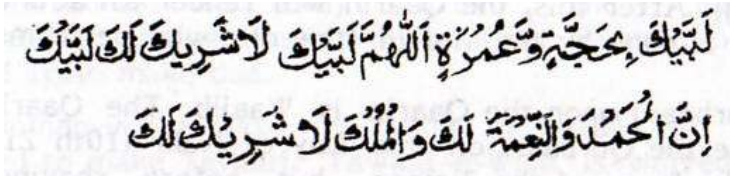 لَبَّيْكَ بِحَجَّةٍ وَّعُمْرَةٍ اَللّٰهُمَّ لَبَّيْكَ لَا شَرِيْكَ لَكَ لَبَّيْكَ
اِنَّ الْحَمْدَ وَالنِّعْمَةَ لَكَ وَالْمُلْكَ لَا شَرِيْكَ لَكَ